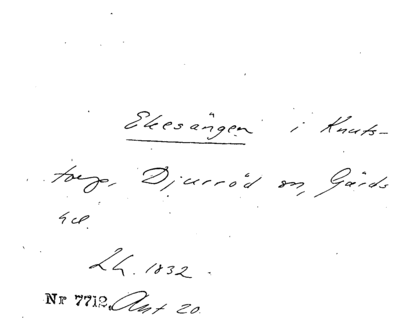 Ekesången i Knuts-
torp, Djurröd sn, Gärds
hd.
Lh. 1832.
Nr 7712. Akt 20.